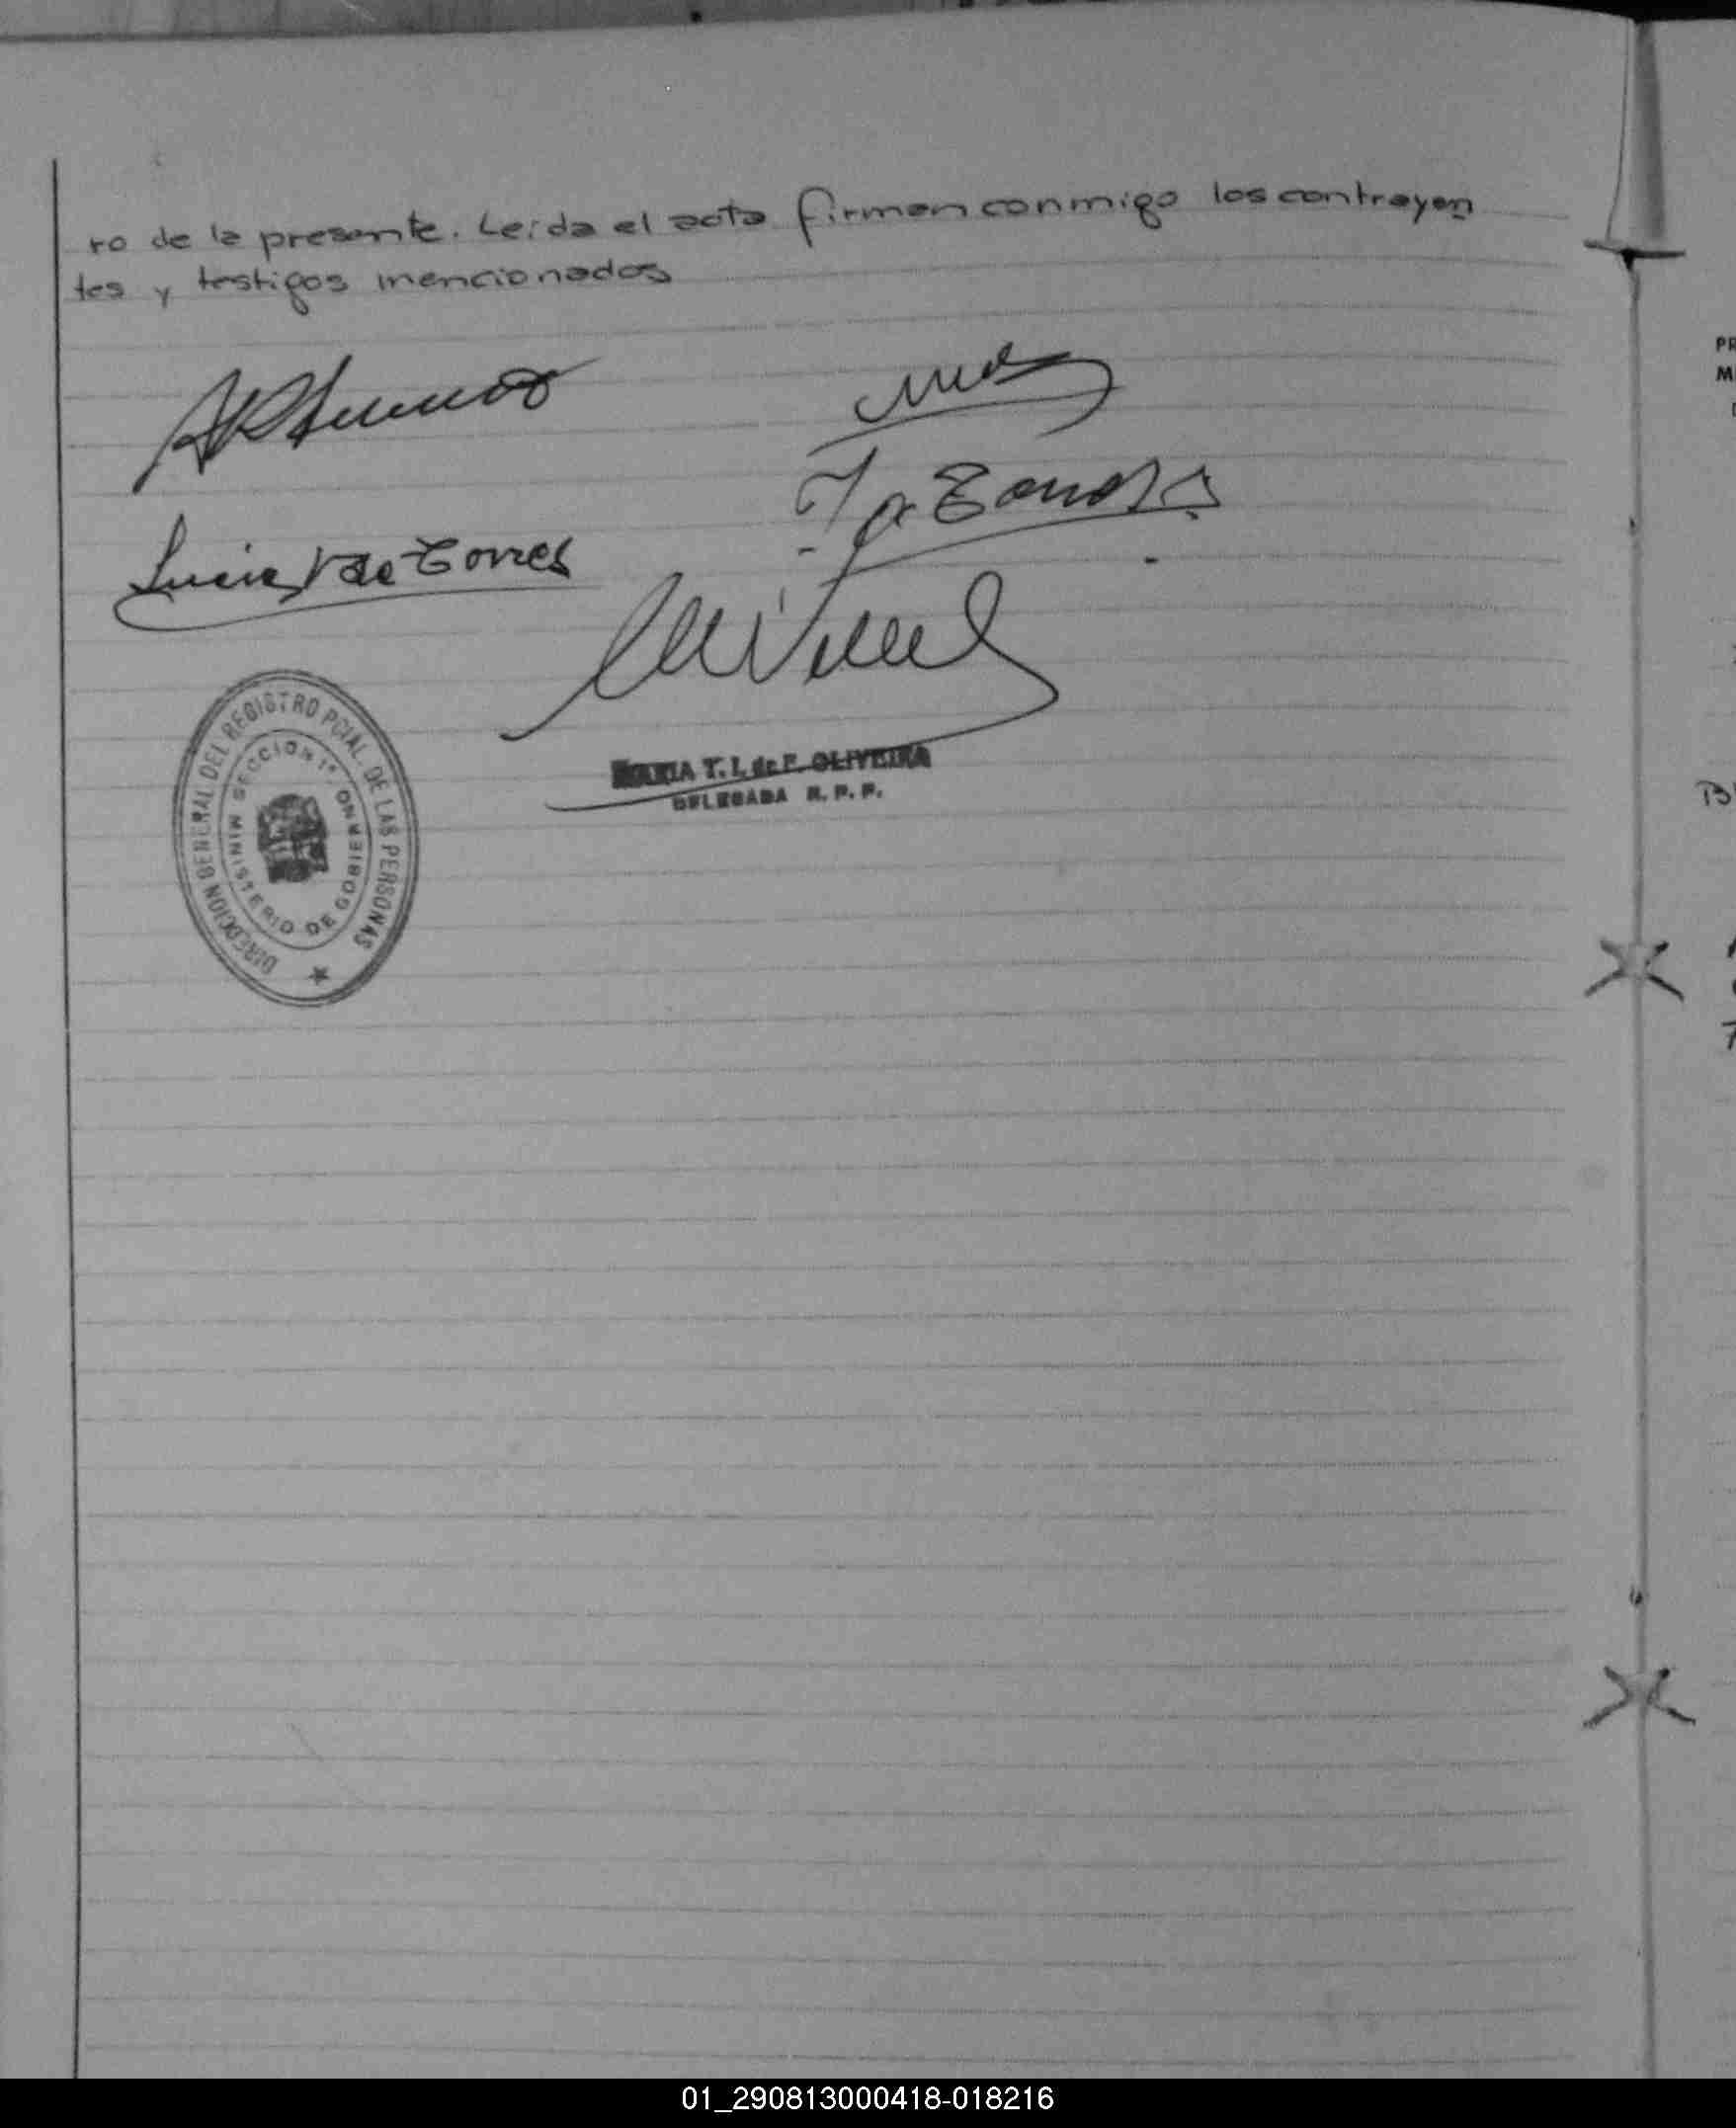 ro de la presente. Leída el acta firman conmigo los contrayen
tes y testigos mencionados
Lucia V de Torres
DIRECCION GENERAL DEL REGISTRO PCIAL. DE LAS PERSONAS
SECCION 1ª
MINISTERIO DE GOBIERNO
MARIA T. I. de F. OLIVEIRA
DELEGADA R. P. P.
PR
M
01_290813000418-018216